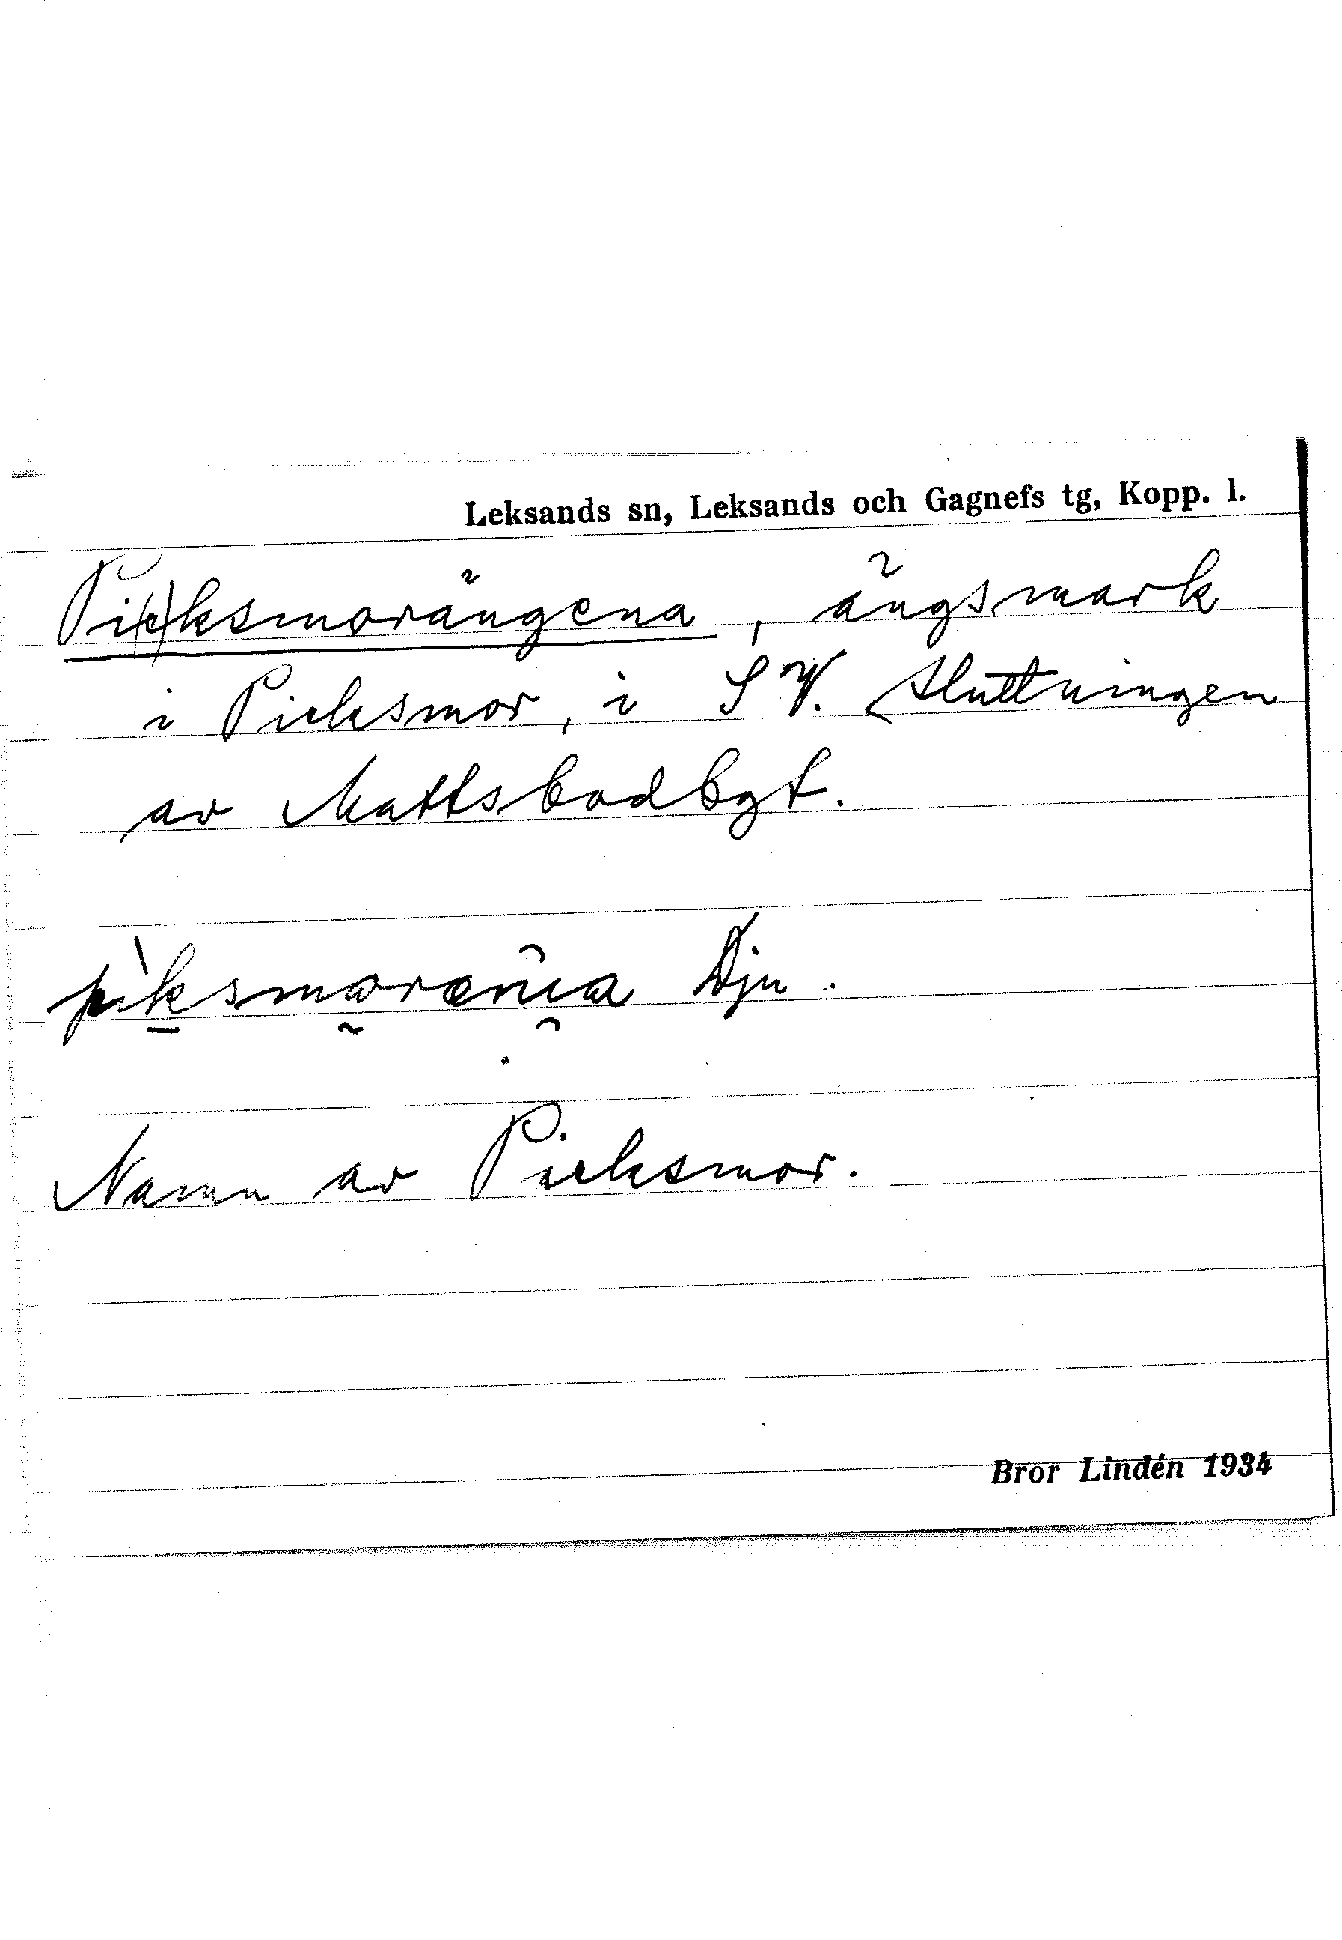 Leksands sn, Leksands och Gagnefs tg, Kopp. l.
Pi(c)ksmorängena, ängsmark
i Picksmor, i SV. sluttningen
av Mattsbodbgt.
pìksmoræŋa Dju.
Namn av Picksmor.
Bror Lindén 1934